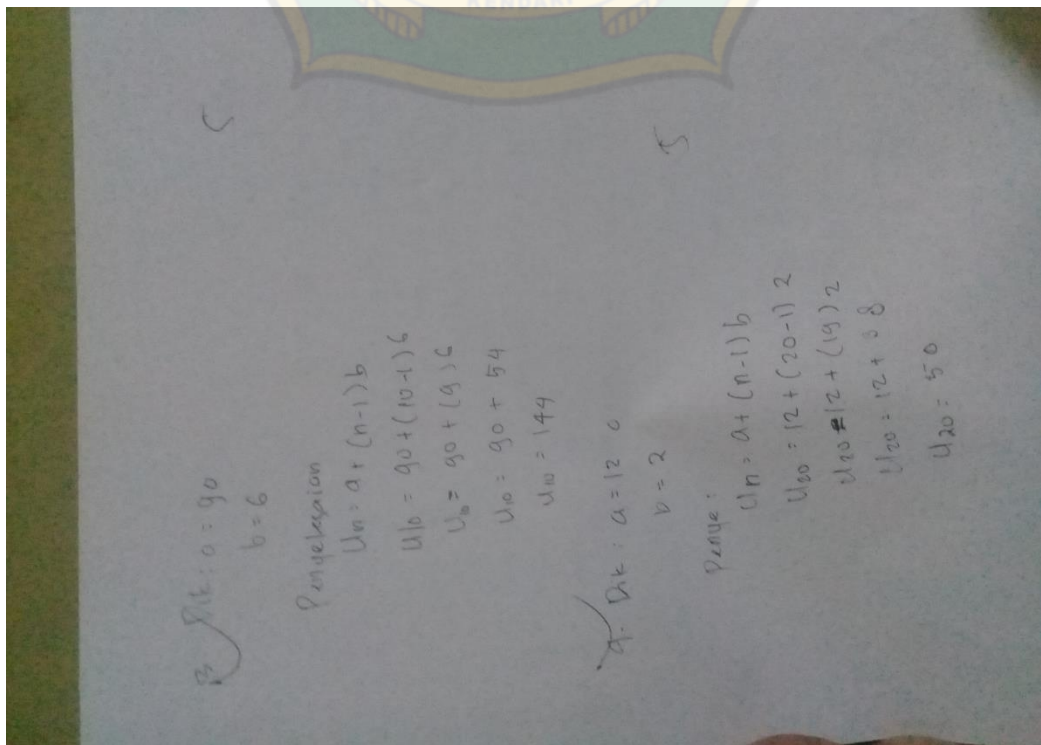 KENDARI
3. Dik : a = 90
b = 6
5
Penyelesaian
Un = a + (n-1) b
U10 = 90 + (10-1) 6
U10 = 90 + (9) 6
U10 = 90 + 54
U10 = 144
4. Dik : a = 12
b = 2
5
Penye :
Un = a + (n-1) b
U20 = 12 + (20-1) 2
U20 = 12 + (19) 2
U20 = 12 + 38
U20 = 50